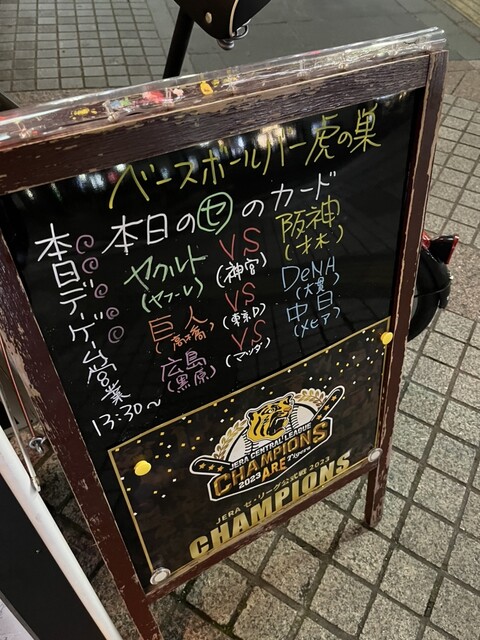 ベースボールバー虎の巣
本日の㋝のカード
ヤクルト VS 阪神
(ヤフーレ) (神宮) (才木)
巨人 VS DeNA
(高橋) (東京D) (大貫)
広島 VS 中日
(黒原) (マツダ) (メヒア)
本日デーゲーム営業
13:30～
JERA CENTRAL LEAGUE
CHAMPIONS
2023 ARE Tigers
JERA セ・リーグ公式戦 2023
CHAMPIONS